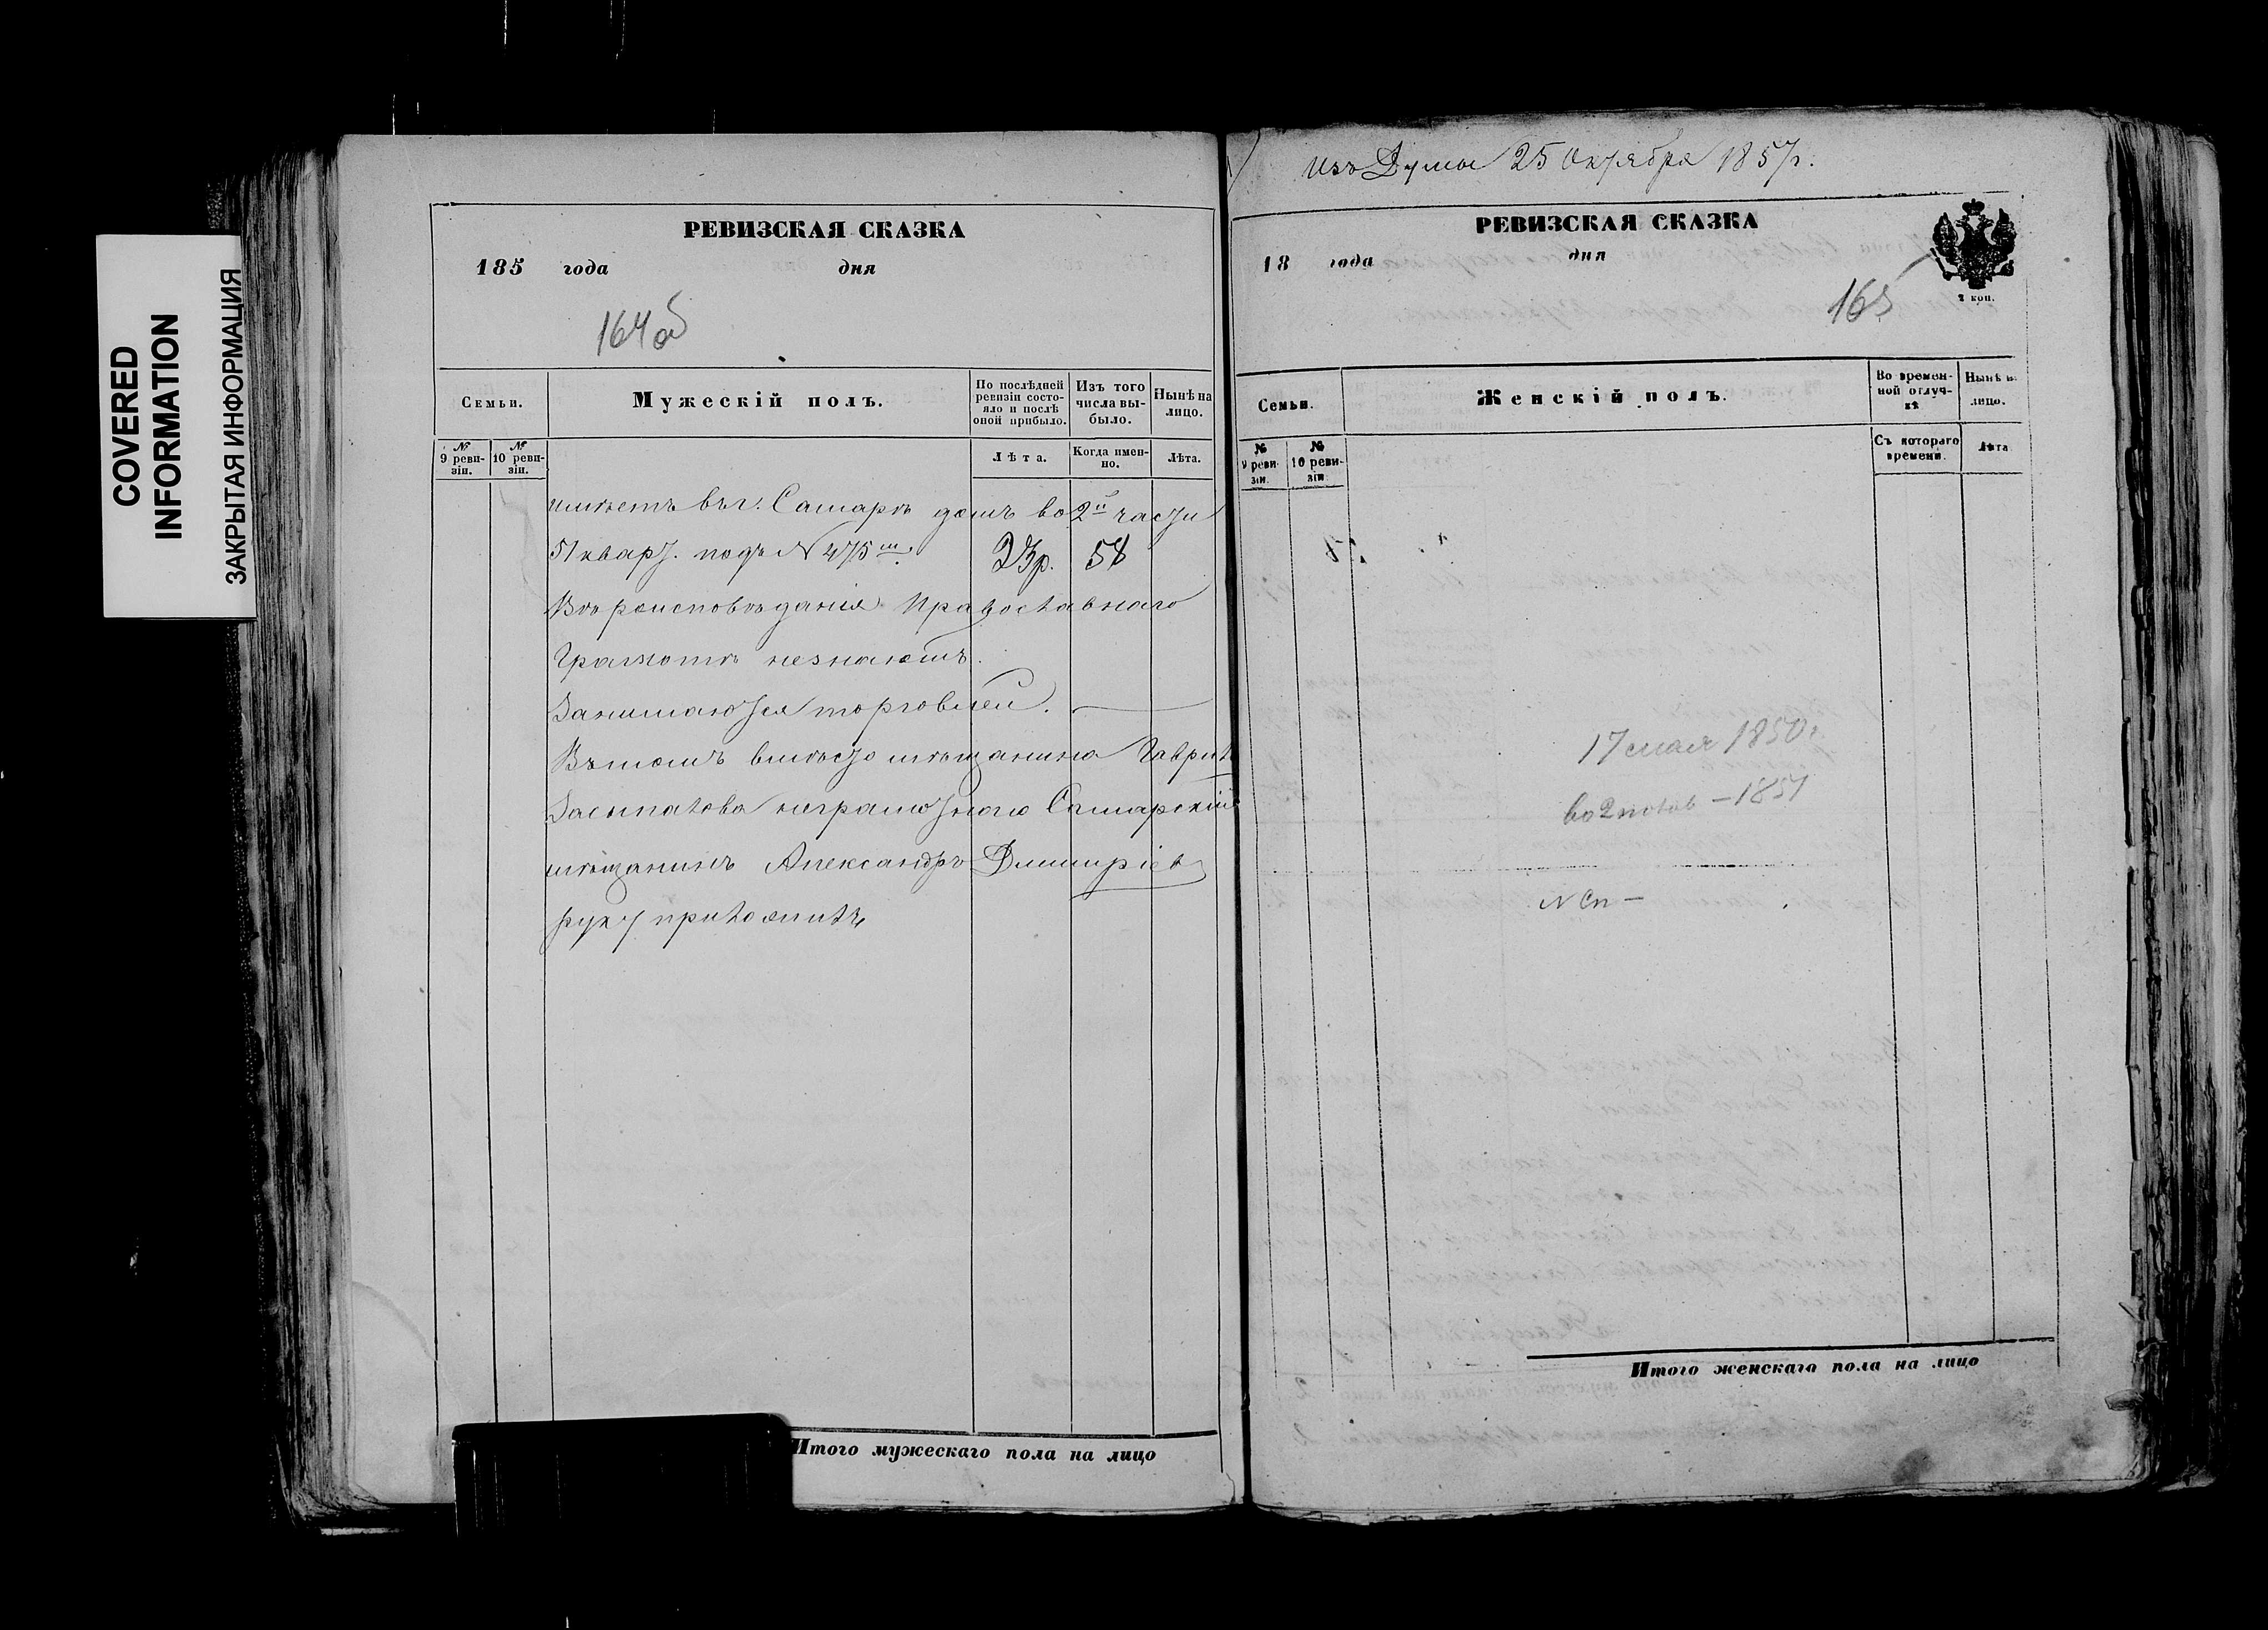 COVERED
INFORMATION
ЗАКРЫТАЯ ИНФОРМАЦИЯ
РЕВИЗСКАЯ СКАЗКА
185 года дня
164 об
Семьи.
Мужескій полъ.
По послѣдней ревизіи состояло и послѣ оной прибыло.
Изъ того числа выбыло.
Нынѣ на лицо.
№ 9 ревизіи.
№ 10 ревизіи.
Лѣта.
Когда именно.
Лѣта.
имѣетъ въ г. Самарѣ домъ во 2й части
51 кварт. подъ N 475м. 23р. 58
Вѣроисповѣданія Православнаго
Грамотѣ незнаютъ.
Занимаются торговлей.
Вътомъ вмѣсто мѣщанина Гаврил
Засыпалова неграмотнаго Самарскій
мѣщанинъ Александръ Дмитріев
руку приложилъ
Итого мужескаго пола на лицо
изъ Думы 25 Октября 1857г.
РЕВИЗСКАЯ СКАЗКА
18 года дня
2 коп.
165
Семьи.
Женскій полъ.
Во временной отлучкѣ
Нынѣ н. лицо.
№ 9 ревизіи.
№ 10 ревизіи.
Съ котораго времени.
Лѣта
17 мая 1850г
во 2 полов – 1851
N Сп –
Итого женскаго пола на лицо